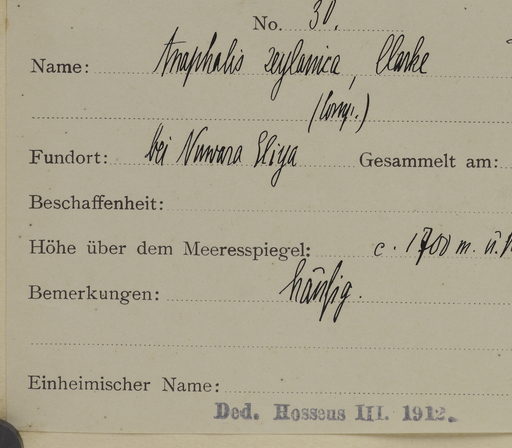 No. 30.
Name: Anaphalis zeylanica, Clarke
(Comp.)
Fundort: bei Nuwara Eliya Gesammelt am:
Beschaffenheit:
Höhe über dem Meeresspiegel: c. 1700 m. ü.
Bemerkungen: häufig.
Einheimischer Name:
Ded. Hosseus III. 1912.